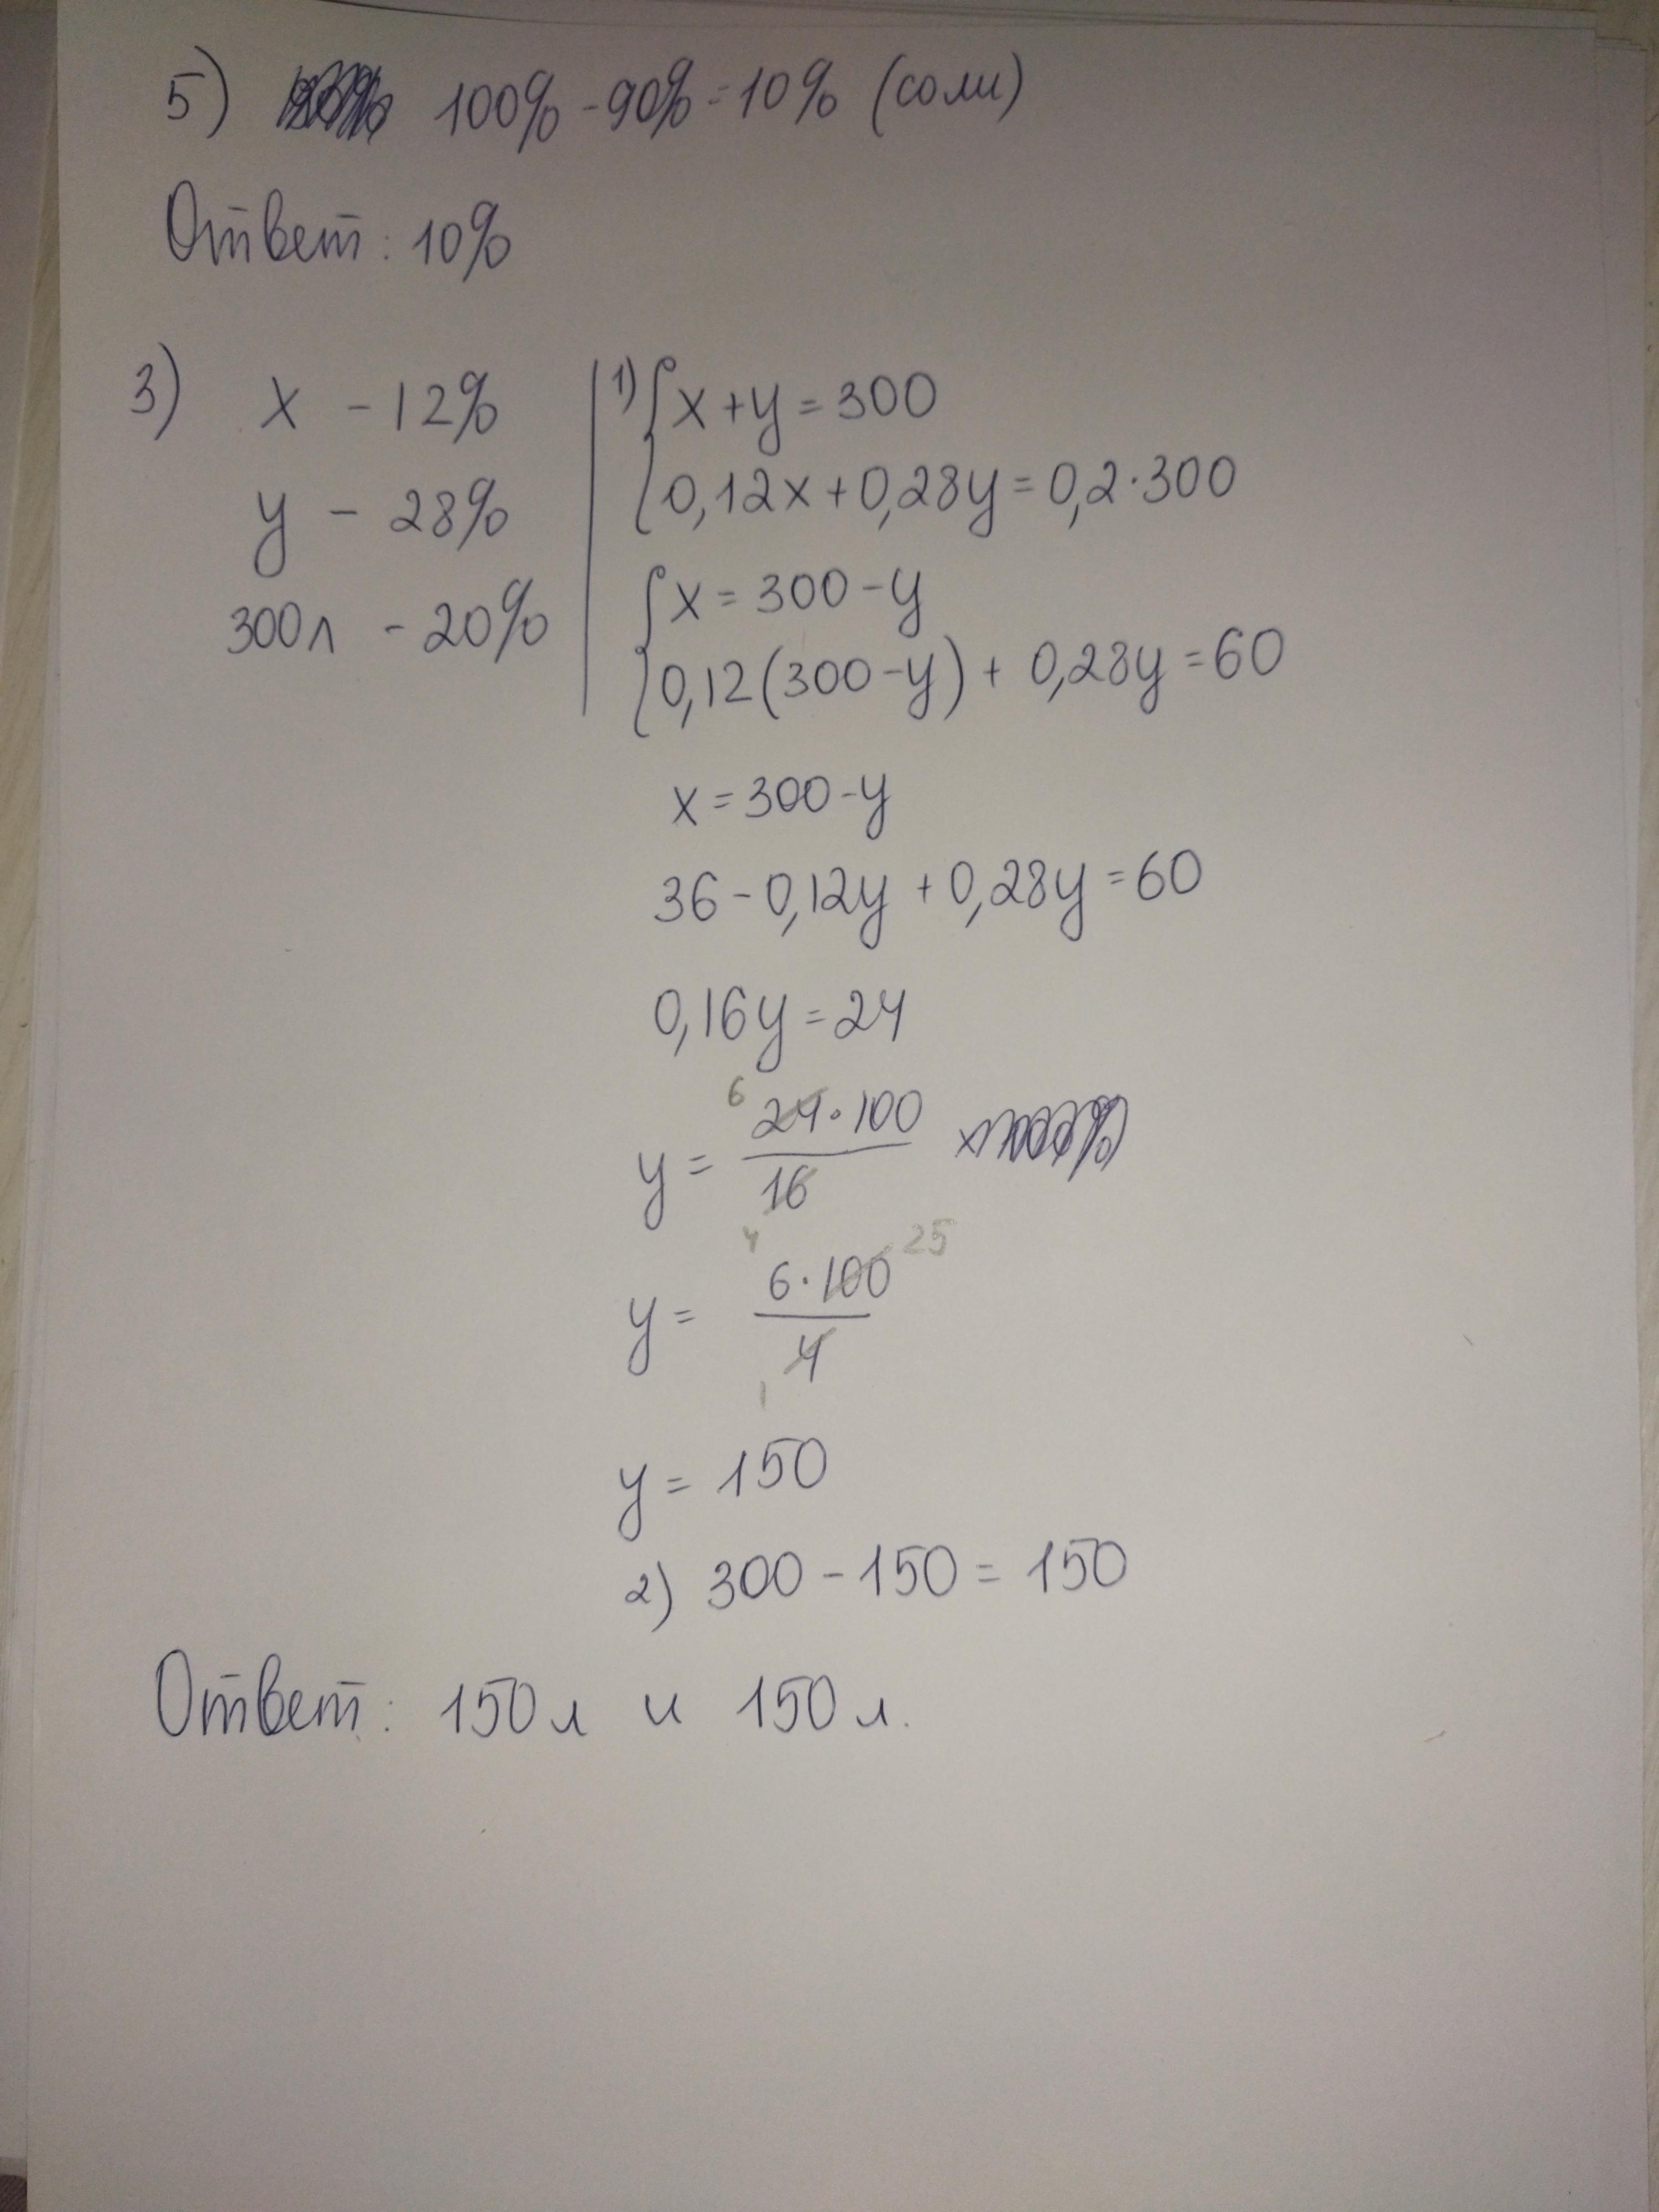 5) 100% - 90% = 10% (соли)
Ответ: 10%
3) x - 12%
y - 28%
300л - 20%
1) { x + y = 300
0,12x + 0,28y = 0,2 · 300
{ x = 300 - y
0,12(300 - y) + 0,28y = 60
x = 300 - y
36 - 0,12y + 0,28y = 60
0,16y = 24
6
y = 24 · 100 / 16
4
25
y = 6 · 100 / 4
1
y = 150
2) 300 - 150 = 150
Ответ: 150 л и 150 л.